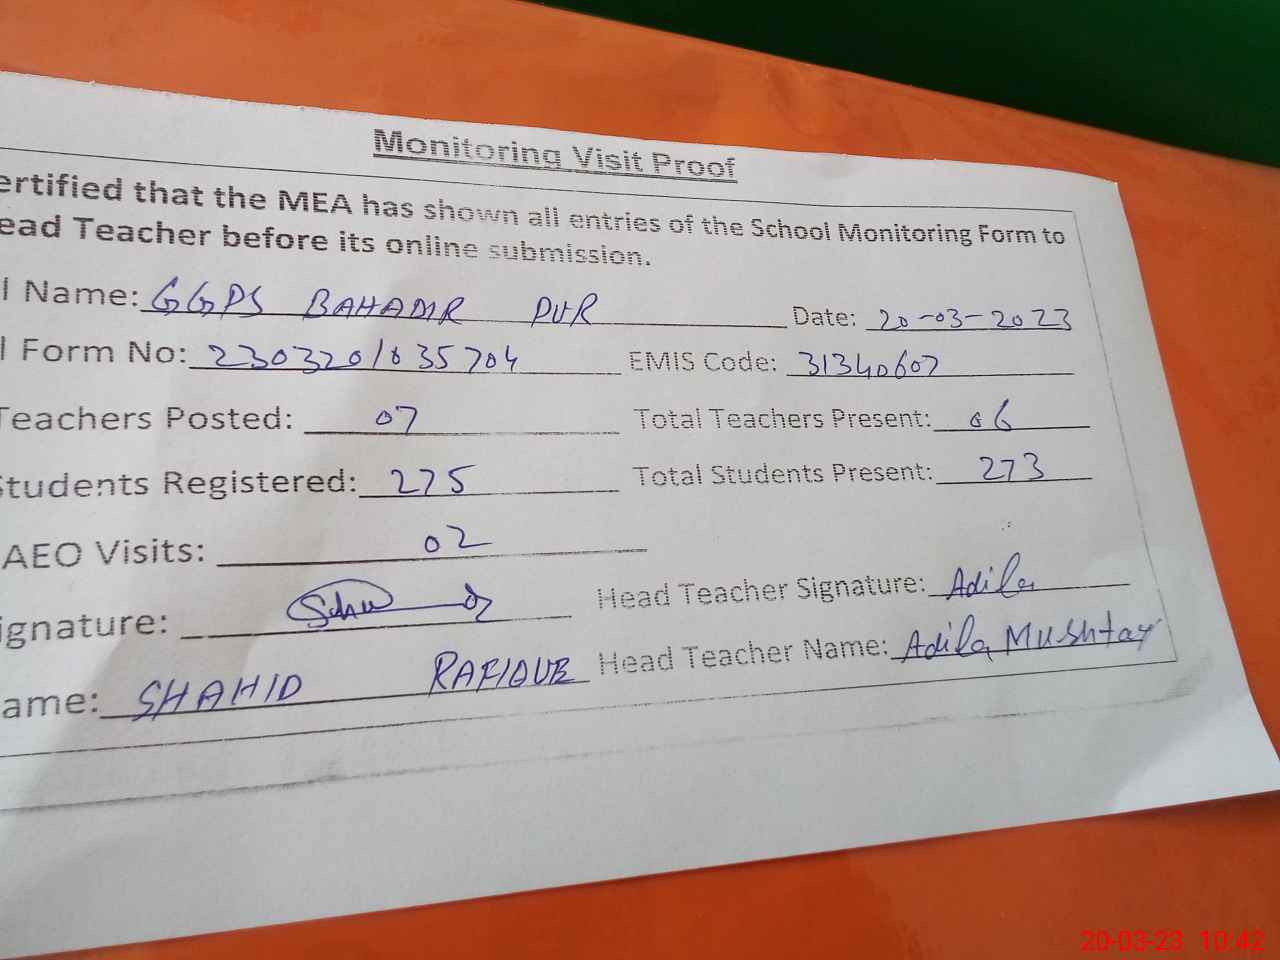 Monitoring Visit Proof
ertified that the MEA has shown all entries of the School Monitoring Form to
ead Teacher before its online submission.
l Name: GGPS BAHADUR PUR Date: 20-03-2023
l Form No: 2303201035704 EMIS Code: 31340607
Teachers Posted: 07 Total Teachers Present: 06
Students Registered: 275 Total Students Present: 273
AEO Visits: 02
ignature: Head Teacher Signature: Adila
ame: SHAHID RAFIQUE Head Teacher Name: Adila Mushtaq
20-03-23 10:42